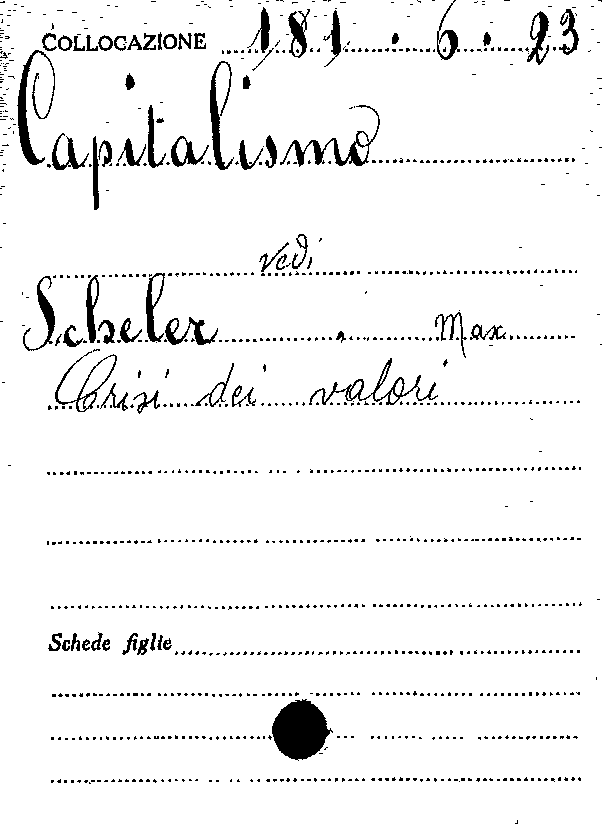 COLLOCAZIONE 181 . 6 . 23
Capitalismo
vedi
Scheler . Max
Crisi dei valori
Schede figlie